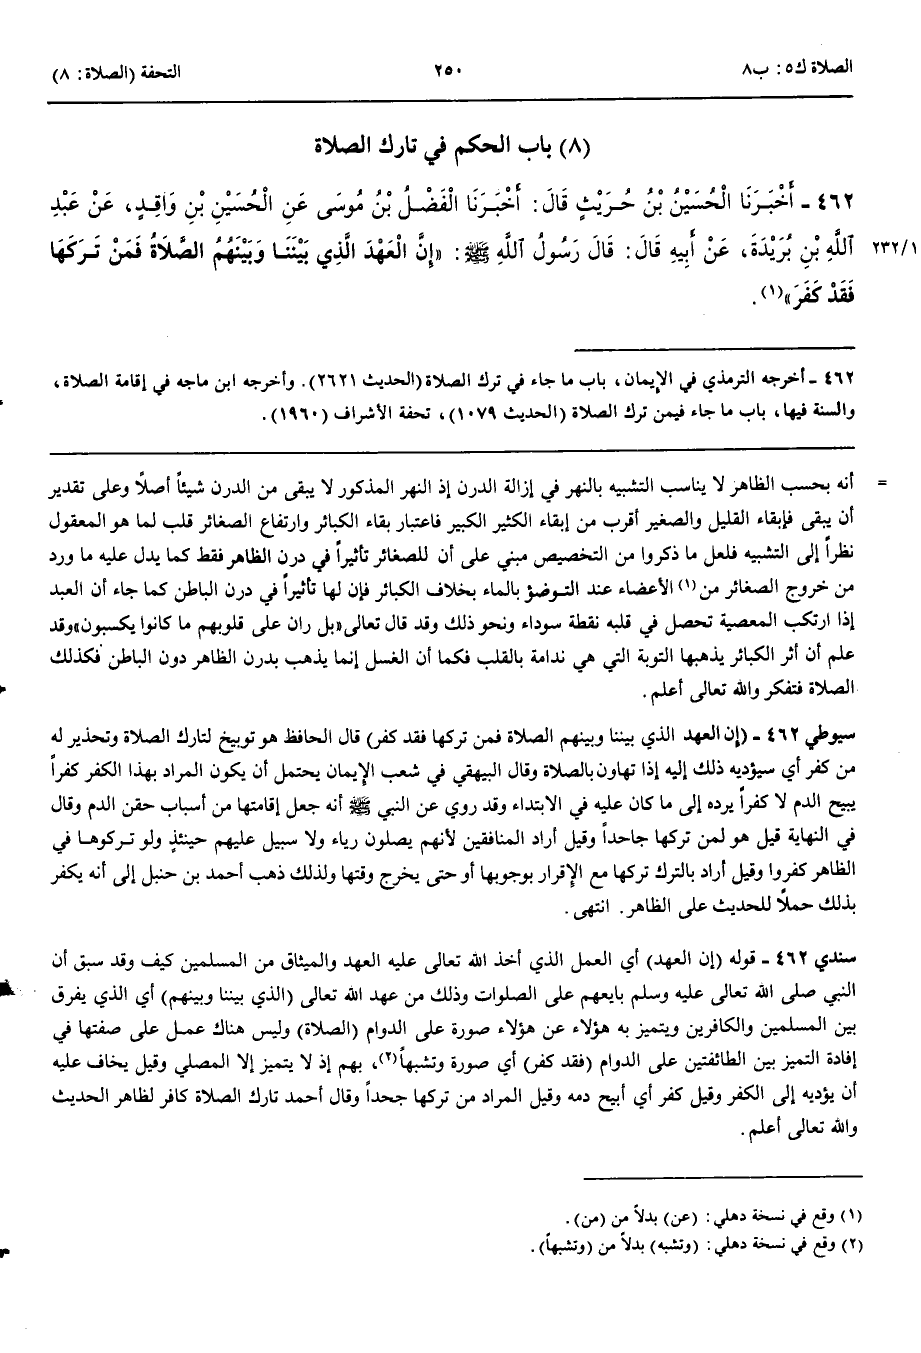 الصلاة ك٥: ب٨
٢٥٠
التحفة (الصلاة: ٨)
(٨) باب الحكم في تارك الصلاة
٤٦٢ - أَخْبَرَنَا الْحُسَيْنُ بْنُ حُرَيْثٍ قَالَ: أَخْبَرَنَا الْفَضْلُ بْنُ مُوسَى عَنِ الْحُسَيْنِ بْنِ وَاقِدٍ، عَنْ عَبْدِ
اللَّهِ بْنِ بُرَيْدَةَ، عَنْ أَبِيهِ قَالَ: قَالَ رَسُولُ اللَّهِ ﷺ: «إِنَّ الْعَهْدَ الَّذِي بَيْنَنَا وَبَيْنَهُمُ الصَّلَاةُ فَمَنْ تَرَكَهَا
٢٣٢/١
فَقَدْ كَفَرَ»(١).
٤٦٢ - أخرجه الترمذي في الإيمان، باب ما جاء في ترك الصلاة (الحديث ٢٦٢١). وأخرجه ابن ماجه في إقامة الصلاة،
والسنة فيها، باب ما جاء فيمن ترك الصلاة (الحديث ١٠٧٩)، تحفة الأشراف (١٩٦٠).
= أنه بحسب الظاهر لا يناسب التشبيه بالنهر في إزالة الدرن إذ النهر المذكور لا يبقى من الدرن شيئاً أصلاً وعلى تقدير
أن يبقى فإبقاء القليل والصغير أقرب من إبقاء الكثير الكبير فاعتبار بقاء الكبائر وارتفاع الصغائر قلب لما هو المعقول
نظراً إلى التشبيه فلعل ما ذكروا من التخصيص مبني على أن للصغائر تأثيراً في درن الظاهر فقط كما يدل عليه ما ورد
من خروج الصغائر من(١) الأعضاء عند التوضؤ بالماء بخلاف الكبائر فإن لها تأثيراً في درن الباطن كما جاء أن العبد
إذا ارتكب المعصية تحصل في قلبه نقطة سوداء ونحو ذلك وقد قال تعالى«بل ران على قلوبهم ما كانوا يكسبون»وقد
علم أن أثر الكبائر يذهبها التوبة التي هي ندامة بالقلب فكما أن الغسل إنما يذهب بدرن الظاهر دون الباطن فكذلك
الصلاة فتفكر والله تعالى أعلم.
سيوطي ٤٦٢ - (إن العهد الذي بيننا وبينهم الصلاة فمن تركها فقد كفر) قال الحافظ هو توبيخ لتارك الصلاة وتحذير له
من كفر أي سيؤديه ذلك إليه إذا تهاون بالصلاة وقال البيهقي في شعب الإيمان يحتمل أن يكون المراد بهذا الكفر كفراً
يبيح الدم لا كفراً يرده إلى ما كان عليه في الابتداء وقد روي عن النبي ﷺ أنه جعل إقامتها من أسباب حقن الدم وقال
في النهاية قيل هو لمن تركها جاحداً وقيل أراد المنافقين لأنهم يصلون رياء ولا سبيل عليهم حينئذٍ ولو تركوها في
الظاهر كفروا وقيل أراد بالترك تركها مع الإقرار بوجوبها أو حتى يخرج وقتها ولذلك ذهب أحمد بن حنبل إلى أنه يكفر
بذلك حملاً للحديث على الظاهر. انتهى.
سندي ٤٦٢ - قوله (إن العهد) أي العمل الذي أخذ الله تعالى عليه العهد والميثاق من المسلمين كيف وقد سبق أن
النبي صلى الله تعالى عليه وسلم بايعهم على الصلوات وذلك من عهد الله تعالى (الذي بيننا وبينهم) أي الذي يفرق
بين المسلمين والكافرين ويتميز به هؤلاء عن هؤلاء صورة على الدوام (الصلاة) وليس هناك عمل على صفتها في
إفادة التميز بين الطائفتين على الدوام (فقد كفر) أي صورة وتشبهاً(٢)، بهم إذ لا يتميز إلا المصلي وقيل يخاف عليه
أن يؤديه إلى الكفر وقيل كفر أي أبيح دمه وقيل المراد من تركها جحداً وقال أحمد تارك الصلاة كافر لظاهر الحديث
والله تعالى أعلم.
(١) وقع في نسخة دهلي: (عن) بدلاً من (من).
(٢) وقع في نسخة دهلي: (وتشبه) بدلاً من (وتشبهاً).